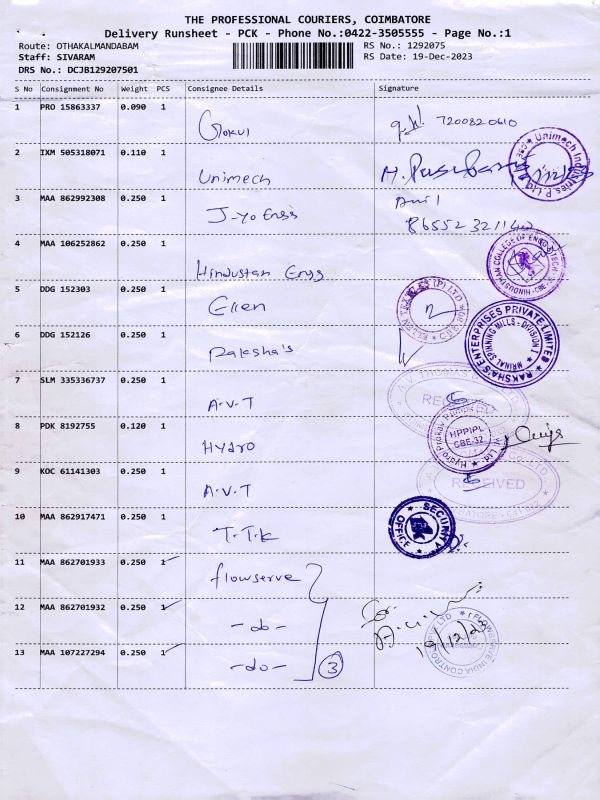 THE PROFESSIONAL COURIERS, COIMBATORE
Delivery Runsheet - PCK - Phone No.:0422-3505555 - Page No.:1
Route: OTHAKALMANDABAM
RS No.: 1292075
Staff: SIVARAM
RS Date: 19-Dec-2023
DRS No.: DCJB129207501
S No Consignment No Weight PCS Consignee Details Signature
1 PRO 15863337 0.090 1 Gokul 7200820610
2 IXM 505318071 0.110 1 Unimech
Unimech Industries P Ltd
3 MAA 862992308 0.250 1 J-yo Engg
4 MAA 106252862 0.250 1 Hindustan Engg
5 DDG 152303 0.250 1 Ellen
6 DDG 152126 0.250 1 Raksha's
RAKSHA'S ENTERPRISES PRIVATE LIMITED
MRINAL SPINNING MILLS - DIVISION
7 SLM 335336737 0.250 1 A.V.T
8 PDK 8192755 0.120 1 Hydro
HPPIPL
CBE-32
9 KOC 61141303 0.250 1 A.V.T
RECEIVED
10 MAA 862917471 0.250 1 T.T.K
SECURITY OFFICE
11 MAA 862701933 0.250 1 flowserve
12 MAA 862701932 0.250 1 -do-
13 MAA 107227294 0.250 1 -do- 3
for
19/12/23